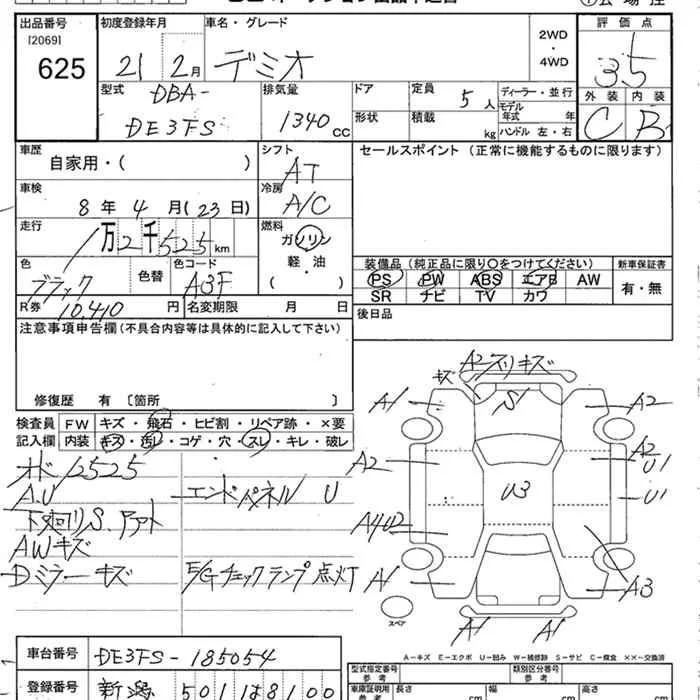 出品番号 初度登録年月 車名・グレード 評価点
[2069]
625 21 2月 デミオ 2WD ・ 4WD 3.5
型式 DBA- DE3FS 排気量 1340 CC ドア 定員 5人 ディーラー・並行 外装 内装
形状 積載 kg モデル年式 年 ハンドル 左・右 C B
車歴 自家用・( ) シフト AT セールスポイント (正常に機能するものに限ります)
車検 8年 4月(23日) 冷房 A/C
走行 1万2千525km 燃料 ガソリン 軽・油 ( )
色 ブラック 色替 色コード A3F 装備品 (純正品に限り○をつけてください) 新車保証書
PS PW ABS エアB AW 有・無
SR ナビ TV カワ
R券 10,410 円 名変期限 月 日 後日品
注意事項申告欄(不具合内容等は具体的に記入して下さい)
修復歴 有 〔箇所 〕
検査員 FW キズ・飛石・ヒビ割・リペア跡・×要
記入欄 内装 キズ・汚レ・コゲ・穴・スレ・キレ・破レ
A2スリキズ
キズ S1
A1 A2
オド 12525
A2 A2 U1
A.U エンドパネル U
U3 U1
下廻りS、Pアト
A4U2
AWキズ
Dミラーキズ E/Gチェックランプ点灯
A1 A3
スペア
A1 A1
A-キズ E-エクボ U-凹み W-補修跡 S-サビ C-腐食 ××-交換済
車台番号 DE3FS-185054 型式指定番号 参考 類別区分番号 参考
登録番号 新潟 501 は8100 車庫証明用 参考 長さ cm 幅 cm 高さ cm